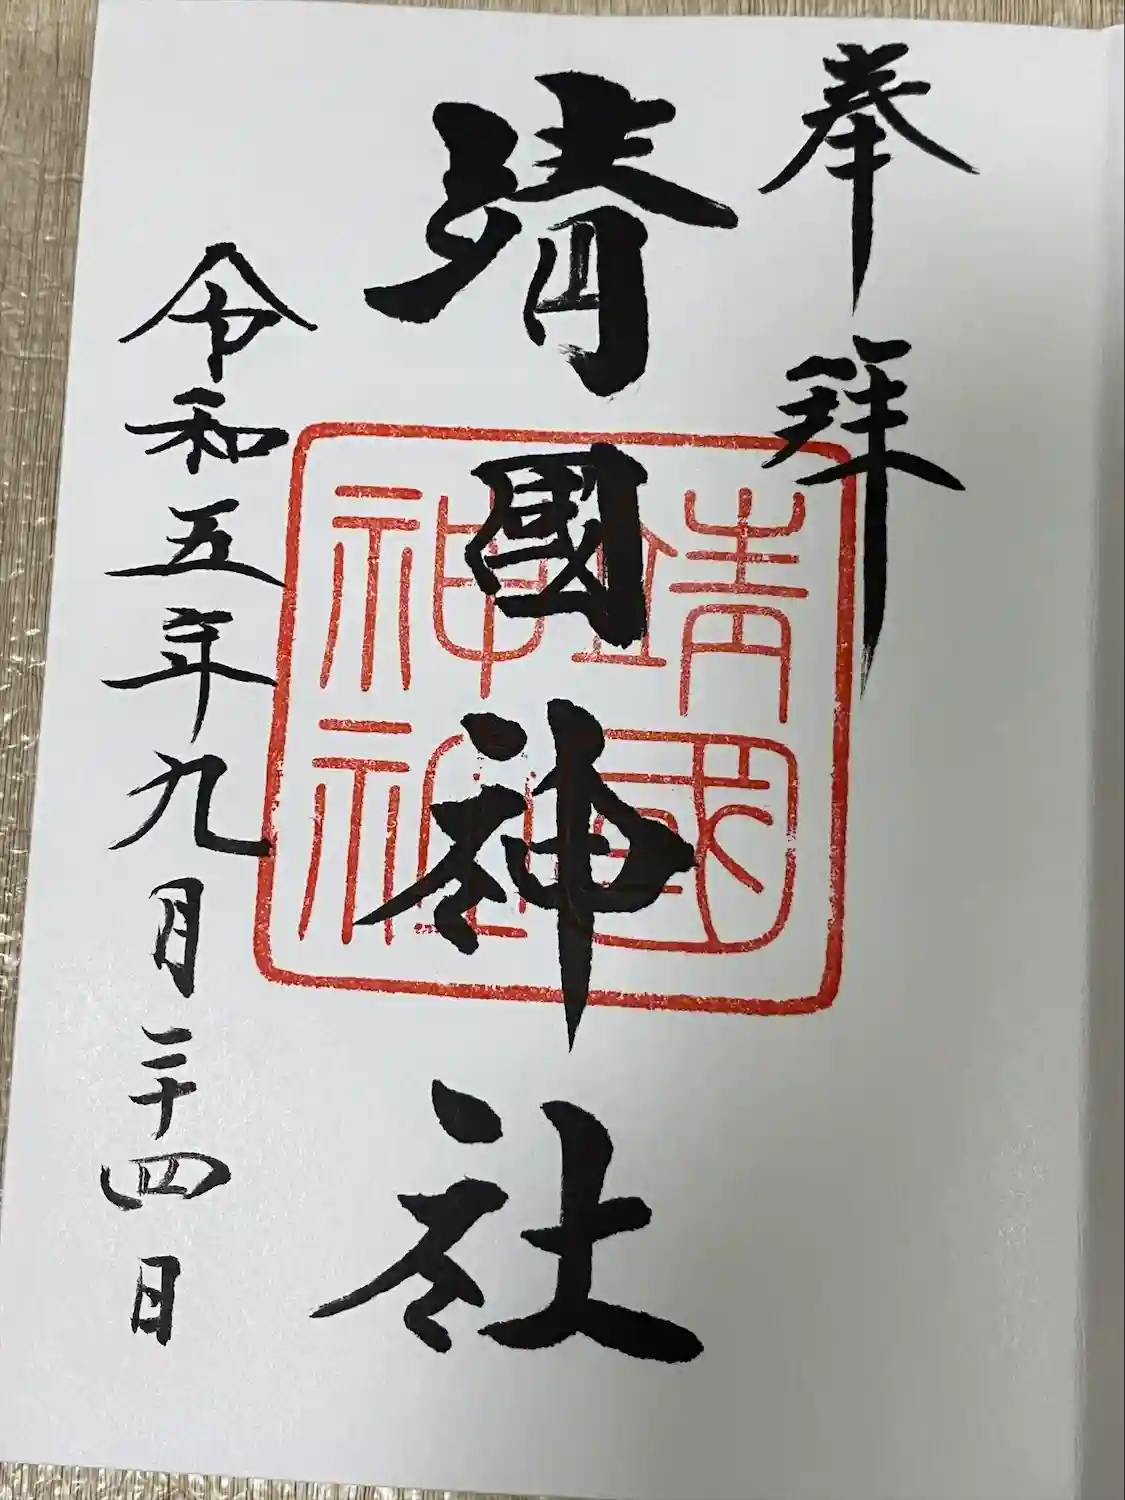 奉拜
靖國神社
靖國
神社
令和五年九月二十四日